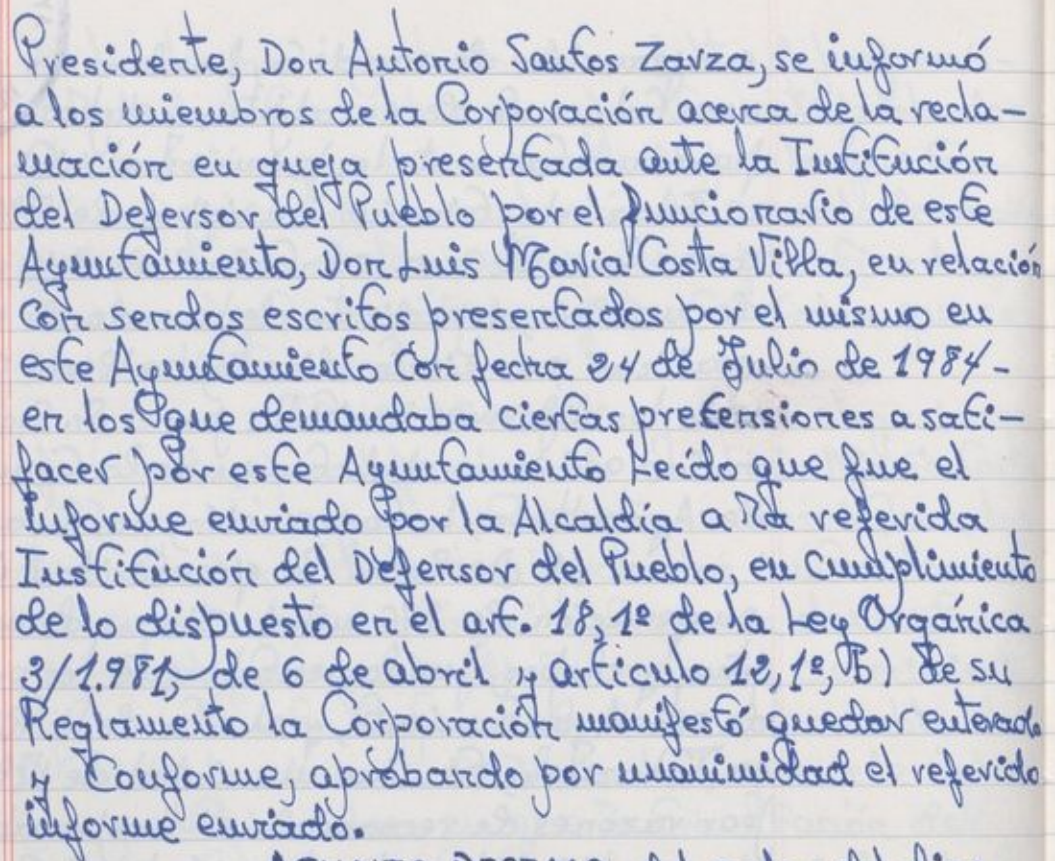 Presidente, Don Antonio Santos Zarza, se informó
a los miembros de la Corporación acerca de la recla-
mación en queja presentada ante la Institución
del Defensor del Pueblo por el funcionario de este
Ayuntamiento, Don Luis Mavia Costa Villa, en relación
con sendos escritos presentados por el mismo en
este Ayuntamiento con fecha 24 de Julio de 1984-
en los que demandaba ciertas pretensiones a sati-
facer por este Ayuntamiento Leído que fue el
informe enviado por la Alcaldía a la referida
Institución del Defensor del Pueblo, en cumplimiento
de lo dispuesto en el art. 18,1º de la Ley Orgánica
3/1.981, de 6 de abril y artículo 12,1º, b) de su
Reglamento la Corporación manifestó quedar enterada
y Conforme, aprobando por unanimidad el referido
informe enviado.